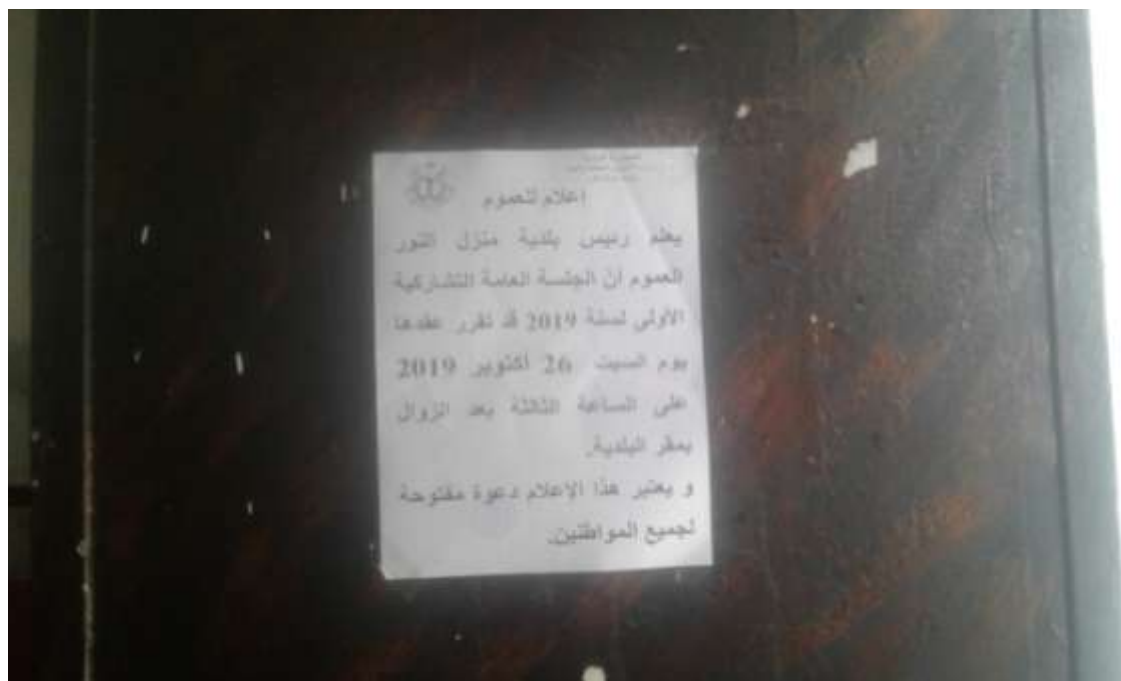 إعلام للعموم
يعلم رئيس بلدية منزل النور
العموم أنّ الجلسة العامة التشاركية
الأولى لسنة 2019 قد تقرر عقدها
يوم السبت 26 أكتوبر 2019
على الساعة الثالثة بعد الزوال
بمقر البلدية.
و يعتبر هذا الإعلام دعوة مفتوحة
لجميع المواطنين.